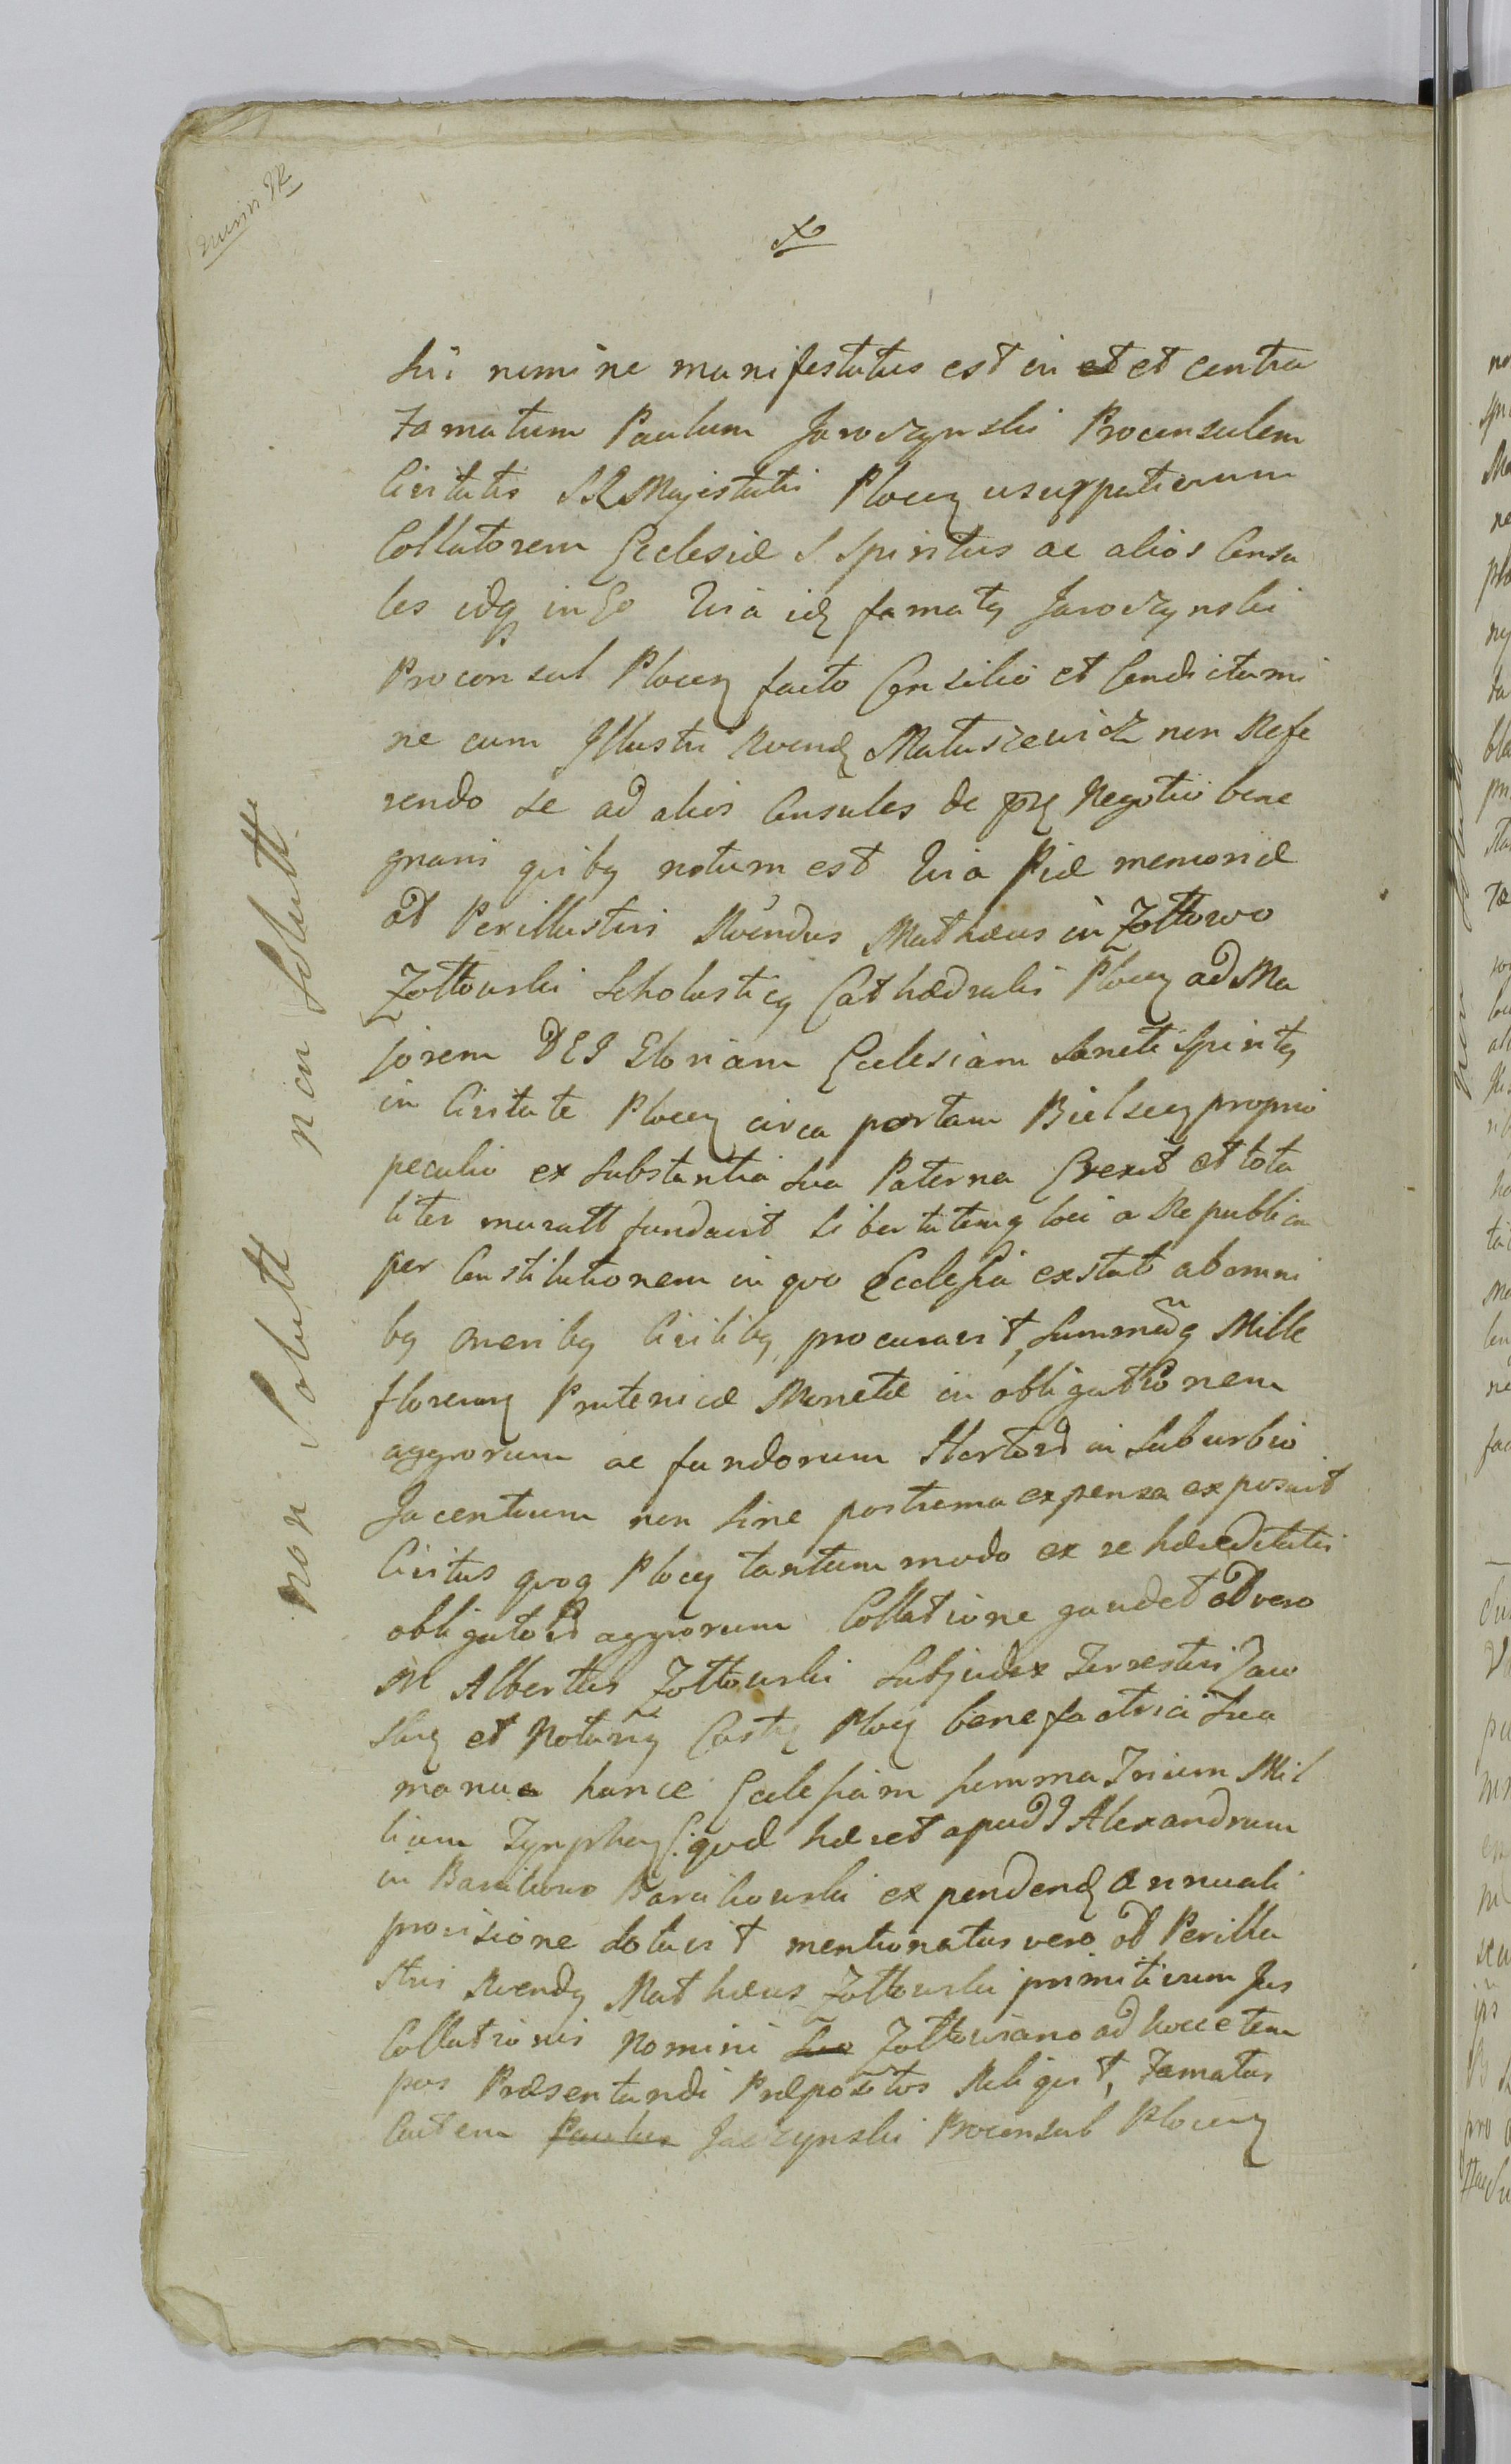 Sui nomine manifestatus est in et et contra
Famatum Paulum Jaroczynski Proconsulem
Civitatis SRMajestatis Plocen usurpativum
Collatorem Ecclesiæ S Spiritus ac alios Consu
les idq in Eo Quia idem famatq Jaroczynski
Proconsul Plocen facto Consilio et Condictami
ne cum Illustri Rvendo Matuszewicz non Refe
rendo se ad alios Consules de præ Negotio bene
gnaris quibq notum est Quia Piæ memoriæ
ad Perillustris Rvendus Mathæus in Zołtowo
Zołtowski Scholasticq Cathædralis Plocen ad Ma
jorem DEI Gloriam Ecclesiam Sancti Spiritq
in Civitate Plocen circa portam Bielscen proprio
peculio ex Substantia Sua Paterna Erexit et tota
liter muratt fundavit libertatemq loci a Republica
per Constitutionem in quo Ecclesia exstat ab omni
bq oneribq Civilibq procuravit, Summamq Mille
florenorum Prutenicæ Monetæ in obligationem
aggrorum ac fundorum Hortord in Suburbio
Jacentium non Sine postrema expensa exposuit
Civitas quoq Plocen tantummodo ex re hæreditatis
obligatord aggrorum Collatione gaudet ad vero
M Albertus Zołtowski Subjudex Terrestris Zaw
skrz et Notariq Castr Plocen benefactrici Sua
manu hance Ecclesiam summa Trium Mil
lium Tynphorum (: quæ hæret apud G Alexandrum
in Baraikowo Baraikowski expendend annuali
provisione dotavit mentionatus vero ad Perillu
stris Rvendq Mathæus Zołtowski primitivum Jus
Collationis Nomini Suo Zołtowsciano ad hocce tem
pus Præsentandi Præpositos Religit, Famatus
autem Paulus Jarczynski Proconsul Plocen
non Solutt non Solutt